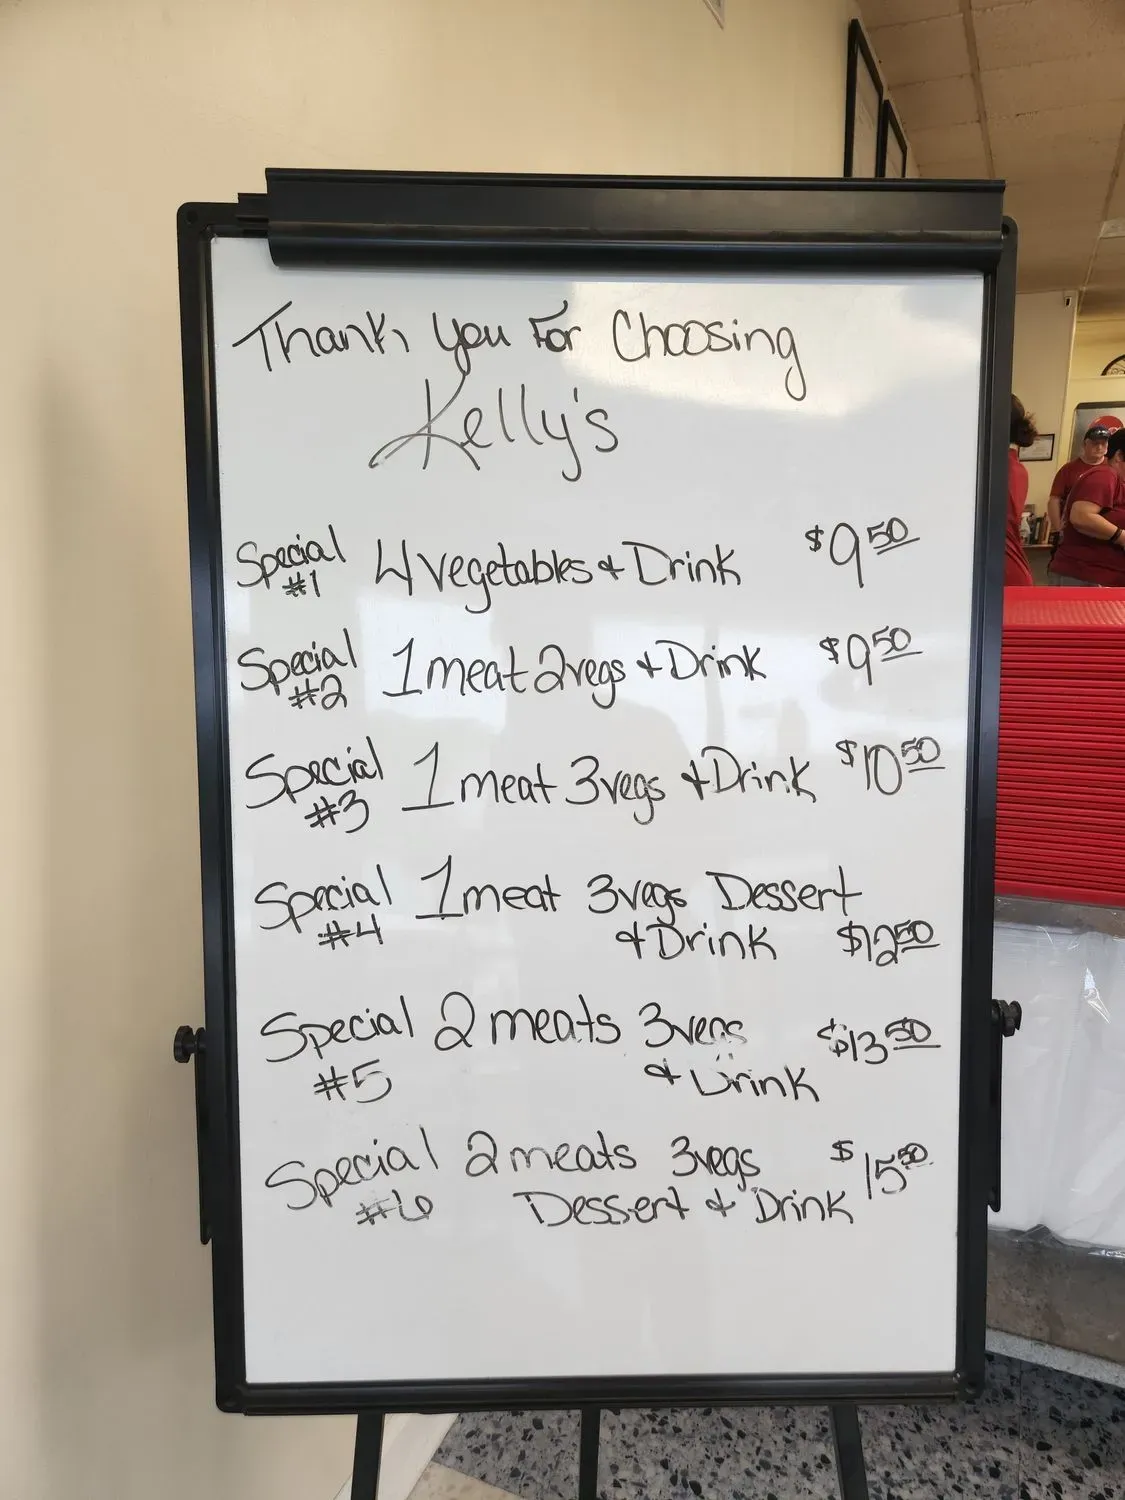 Thank you For Choosing
Kelly's
Special #1 4 vegetables & Drink $9.50
Special #2 1 meat 2 vegs & Drink $9.50
Special #3 1 meat 3 vegs & Drink $10.50
Special #4 1 meat 3 vegs Dessert
& Drink $12.50
Special #5 2 meats 3 vegs $13.50
& Drink
Special #6 2 meats 3 vegs $15.50
Dessert & Drink